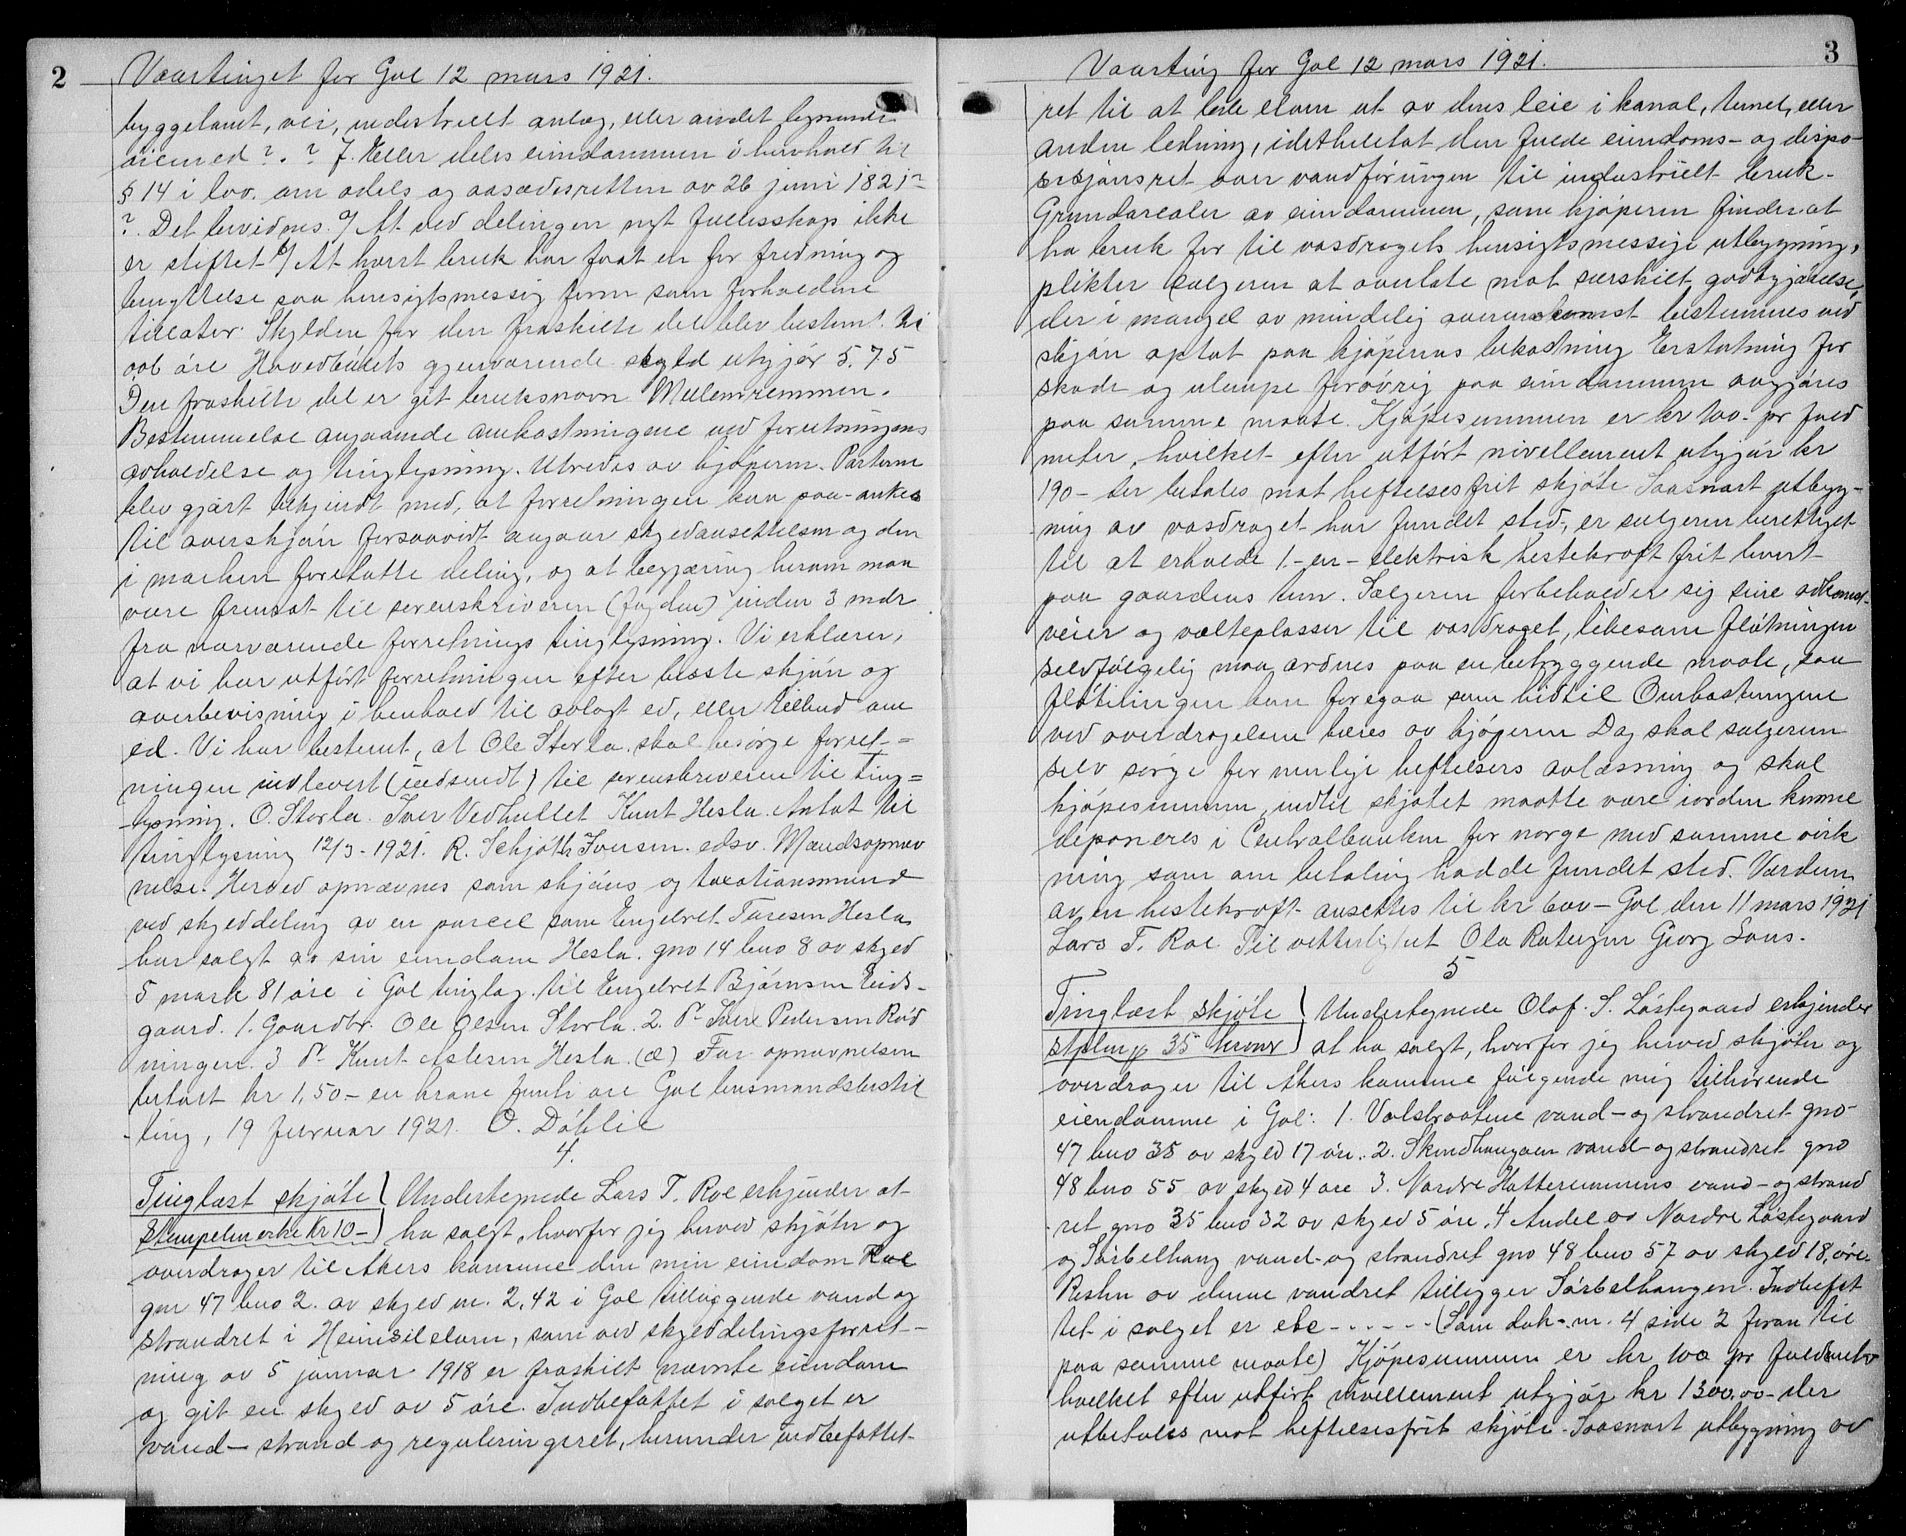 2
Vaartinget for Gol 12 mars 1921.
byggetomt, vei, industrielt anlæg, eller andet lignende
øiemed?.? f. Eller deles eiendommen i henhold til
§ 14 i lov. om odels og aasædesretten av 26 juni 1821?
?. Det bevidnes a/ At ved delingen nyt fællesskap ikke
er stiftet b/ At hvert bruk har faat en for fredning og
benyttelse saa hensigtsmessig form som forholdene
tillater. Skylden for den fraskilte del blev bestemt til
006 øre Hovedbølets gjenværende skyld utgjør 5.75
Den fraskilte del er git bruksnavn Mellemremmen.
Bestemmelse angaaende omkostningene ved forretningens
avholdelse og tinglysning. Utredes av kjøperen. Parterne
blev gjørt bekjendt med, at forretningen kan paa-ankes
til overskjøn forsaavidt angaar skyldansettelsen og den
i marken foretatte deling, og at begjæring herom maa
være fremsat til sorenskriveren (fogden) inden 3 mdr
fra nærværende forretnings tinglysning. Vi erklærer,
at vi har utført forretningen efter beste skjøn og
overbevisning i henhold til avlagt ed, eller tilbud om
ed. Vi har bestemt, at Ole Storla skal besørge forret-=
ningen indlevert (indsendt) til sorenskriveren til ting=
lysning. O. Storla. Iver Vedhullet Knut Hesla. Antat til
tinglysning 12/3-1921. R. Schjøth Iversen. edsv. Mændsopnæv
nelse. Herved opnævnes som skjøns og taxationsmænd
ved skylddeling av en parcel som Engebret Toresen Hesla
har solgt av sin eiendom Hesla. gno 14 bno 8 av skyld
5 mark 81 øre i Gol tinglag til Engebret Bjørnsen Eids-
gaard. 1. Gaardbr. Ole Olsen Storla. 2. do Iver Pedersen Rød
ningen. 3 do Knut Aslesen Hesla. (d) For opnævnelsen
betalt kr 1,50 - en krone femti øre Gol lensmandsbestil
ling, 19 februar 1921. O. Døhlie
4.
Tinglæst skjøte ) Undertegnede Lars T. Roe erkjender at
Stempelmerke Kr 10- ) ha solgt, hvorfor jeg herved skjøter og
overdrager til Akers kommune den min eiendom Roe
gnr 47 bno 2. av skyld m. 2,42 i Gol tilliggende vand og
strandret i Heimsilelven, som ved skylddelingsforret-
ning av 5 januar 1918 er fraskilt nævnte eiendom
og git en skyld av 5 øre. Indbefattet i salget er
vand- strand og reguleringsret, herunder indbefattet
3
Vaarting for Gol 12 mars 1921.
ret til at lede elven ut av dens leie i kanal, tunel, eller
anden ledning, idethelelat den fulde eiendoms- og dispo-
sisjonsret over vandføringen til industrielt bruk.
Grundarealer av eiendommen, som kjøperen finder at
ha bruk for til vasdragets hensigtsmessige utbygning,
plikter sælgeren at overlate mot særskilt godtgjørelse,
der i mangel av mindelig overenskomst bestemmes ved
skjøn optat paa kjøperens bekostning Erstatning for
skade og ulempe forøvrig paa eiendommen avgjøres
paa samme maate. Kjøpesummen er kr 100- pr fald
meter, hvilket efter utført nivellement utgjør kr
190- der betales mot heftelsesfrit skjøte Saasnart utbyg-
ning av vasdraget har fundet sted, er sælgeren berettiget
til at erholde 1.- en - elektrisk hestekraft frit levert
paa gaardens tun. Sælgeren forbeholder sig sine adkomst-
veier og vælteplasser til vasdraget, likesom fløtningen
selvfølgelig maa ordnes paa en betryggende maate, saa
fløtningen kan foregaa som hidtil Omkostningene
ved overdragelsen bæres av kjøperen Dog skal sælgeren
selv sørge for mulige heftelsers avløsning og skal
kjøpesummen, indtil skjøtet maatte være iorden kunne
deponeres i Centralbanken for norge med samme virk
ning som om betaling hadde fundet sted. Værdien
av en hestekraft ansettes til kr 600- Gol den 11 mars 1921
Lars T. Roe Til vitterlighet Ola Gjorg Lous.
5
Tinglæst skjøte ) Undertegnede Olaf. S. Løstegaard erkjender
stpl. 35 kroner ) at ha solgt, hvorfor jeg herved skjøter og
overdrager til Akers kommune følgende mig tilhørende
eiendomme i Gol: 1. vand- og strandret gno
47 bno 35 av skyld 17 øre. 2. vand- og strandret gno
48 bno 55 av skyld 4 øre 3. Nordre vand- og strand
ret gno 35 bno 32 av skyld 5 øre. 4 Andel av Nordre Løstegaard
og Sørbelhaug vand- og strandret gno 48 bno 57 av skyld 18, øre.
Resten av denne vandret tilligger Sørbelhaugen. Indbefat
tet i salget er etc - - - - - (Som dok. nr. 4 side 2 foran til
paa samme maate) Kjøpesummen er kr 100 pr faldmeter
hvilket efter utført nivellement utgjør kr 1300,00- der
utbetales mot heftelsesfrit skjøte. Saasnart utbygning av